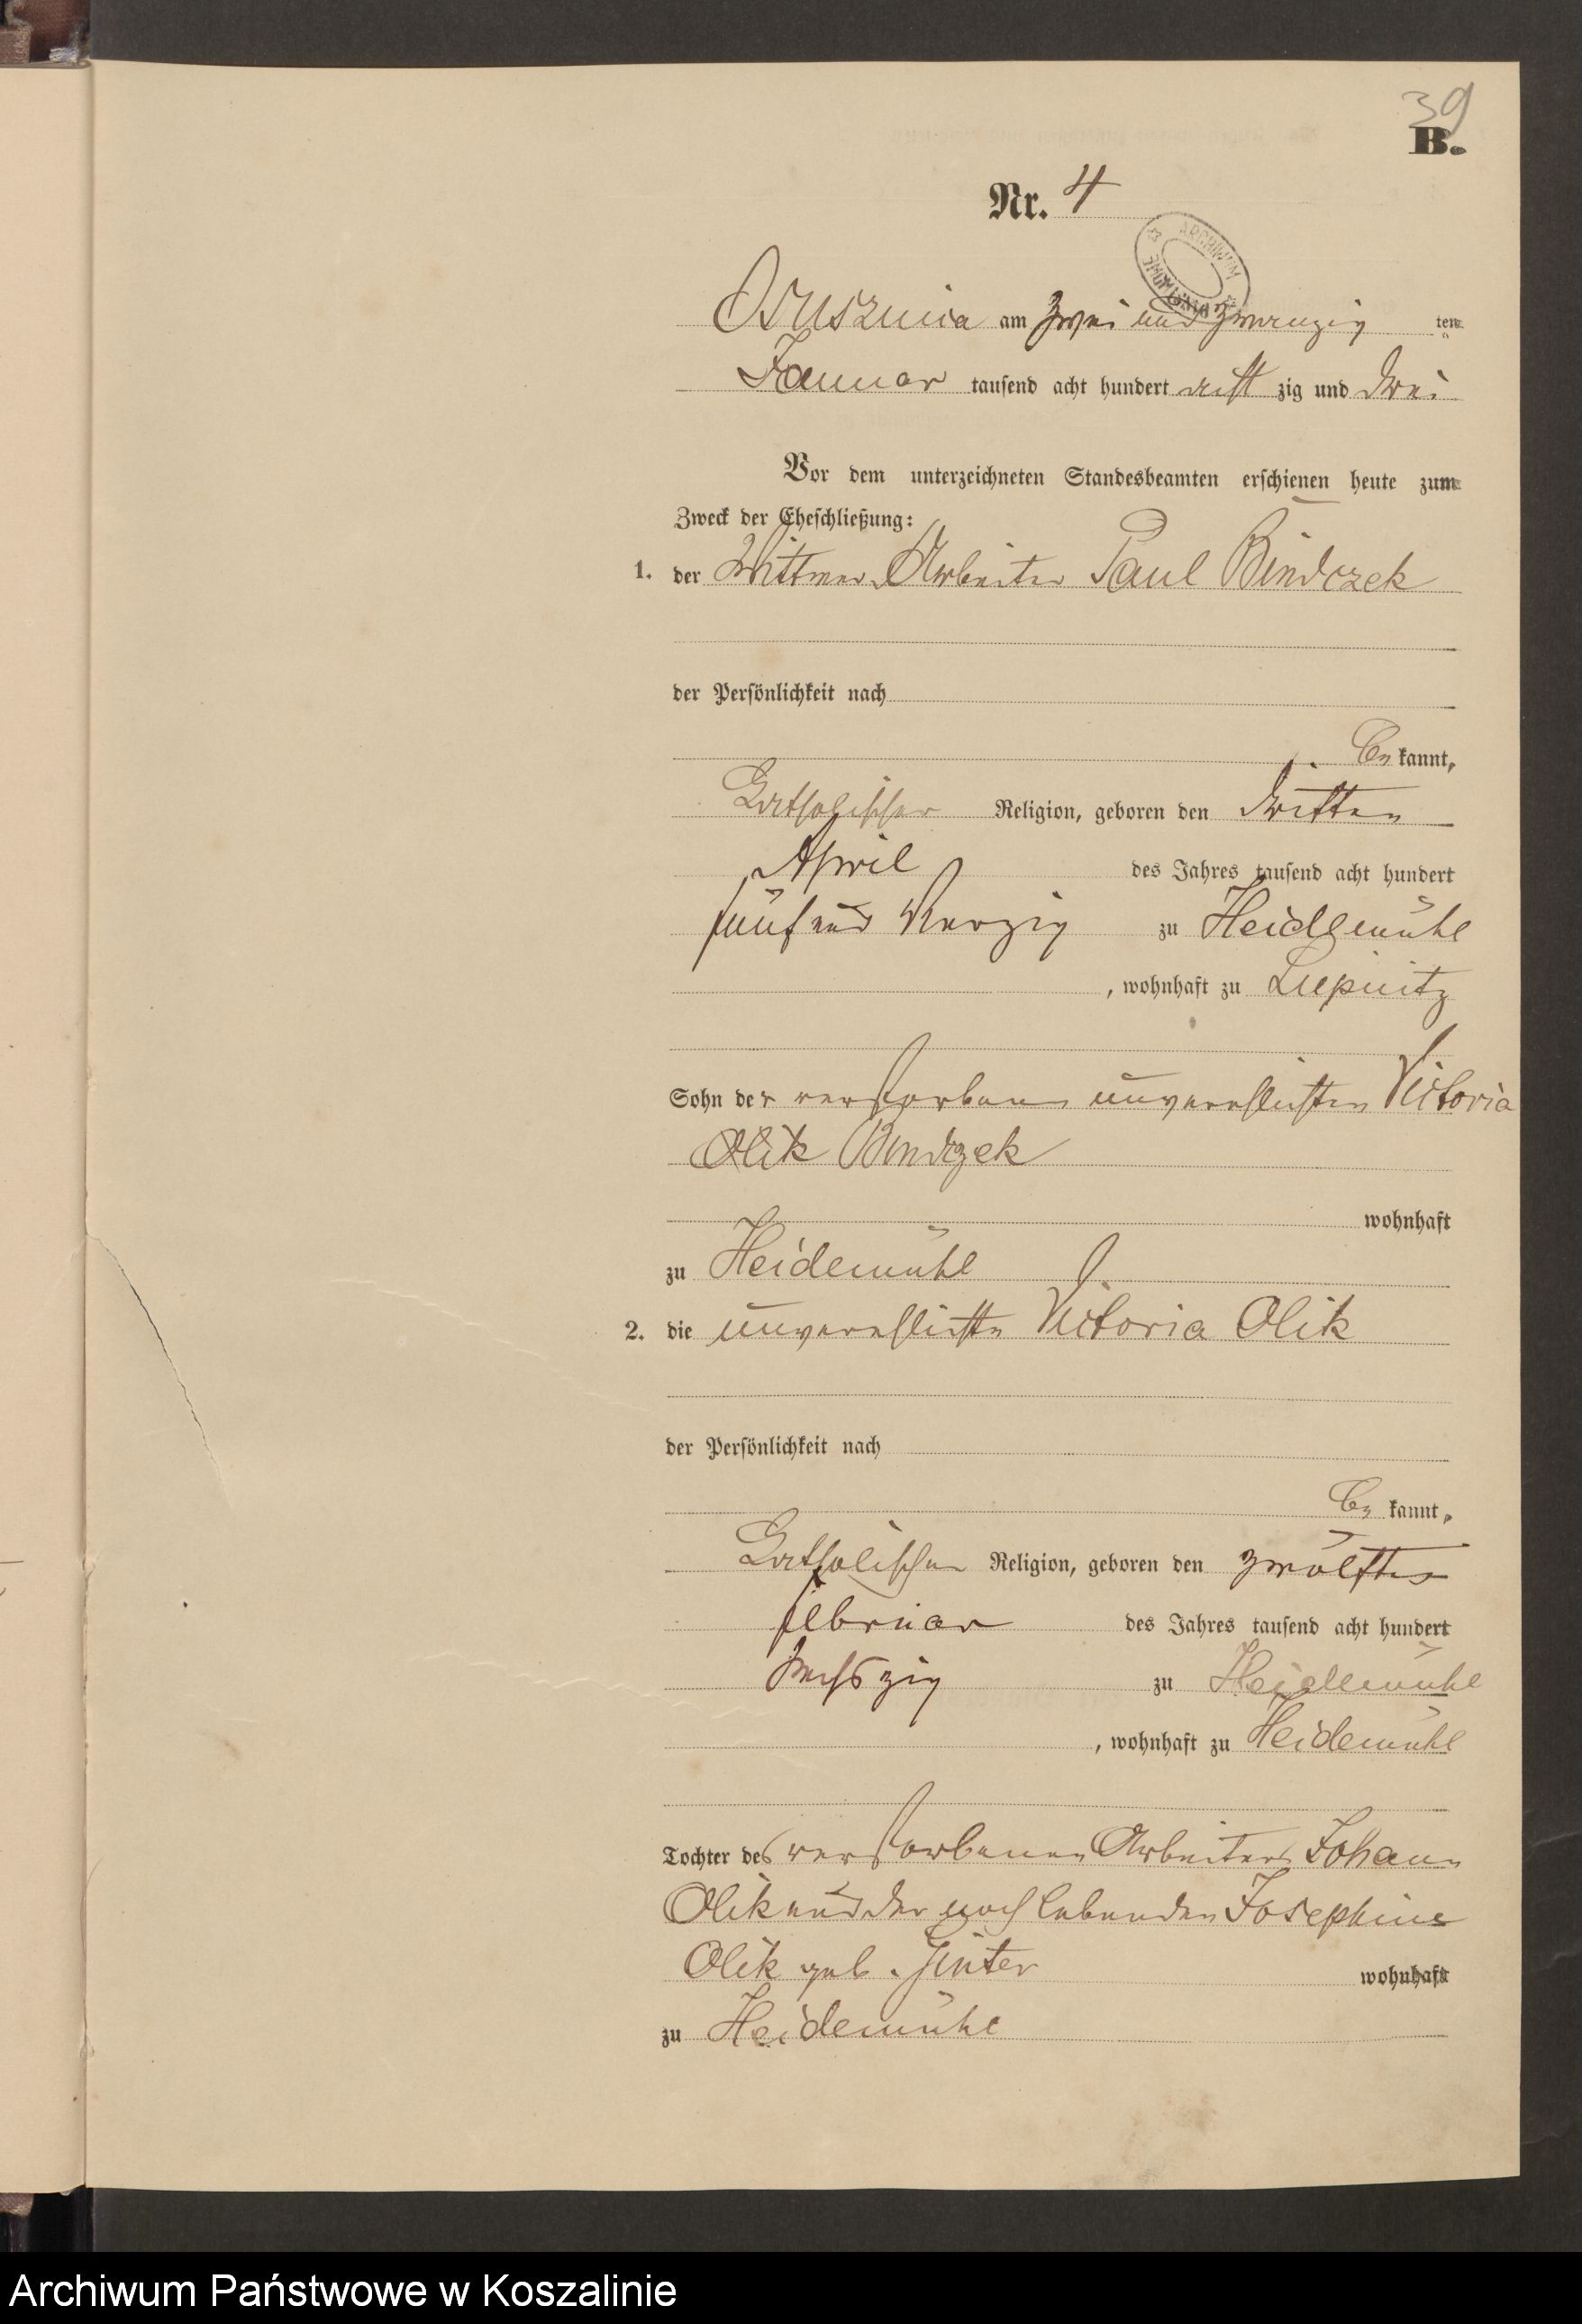 39
B.
Nr. 4
ARCHIWUM
Osusznica am zwei und zwanzig ten
Januar tausend acht hundert acht zig und drei
Vor dem unterzeichneten Standesbeamten erschienen heute zum
Zweck der Eheschließung:
1. der Wittwer Arbeiter Paul Bindczek
der Persönlichkeit nach
be kannt,
katholischer Religion, geboren den dritten
April des Jahres tausend acht hundert
fünf und vierzig zu Heidemühl
, wohnhaft zu Liepnitz
Sohn der verstorbenen unverehelichten Victoria
Olik Bindczek
wohnhaft
zu Heidemühl
2. die unverehelichte Victoria Olik
der Persönlichkeit nach
be kannt,
katholischer Religion, geboren den zwölften
Februar des Jahres tausend acht hundert
sechszig zu Heidemühl
, wohnhaft zu Heidemühl
Tochter des verstorbenen Arbeiters Johann
Olik und der noch lebenden Josephine
Olik geb. Ginter wohnhaft
zu Heidemühl
Archiwum Państwowe w Koszalinie